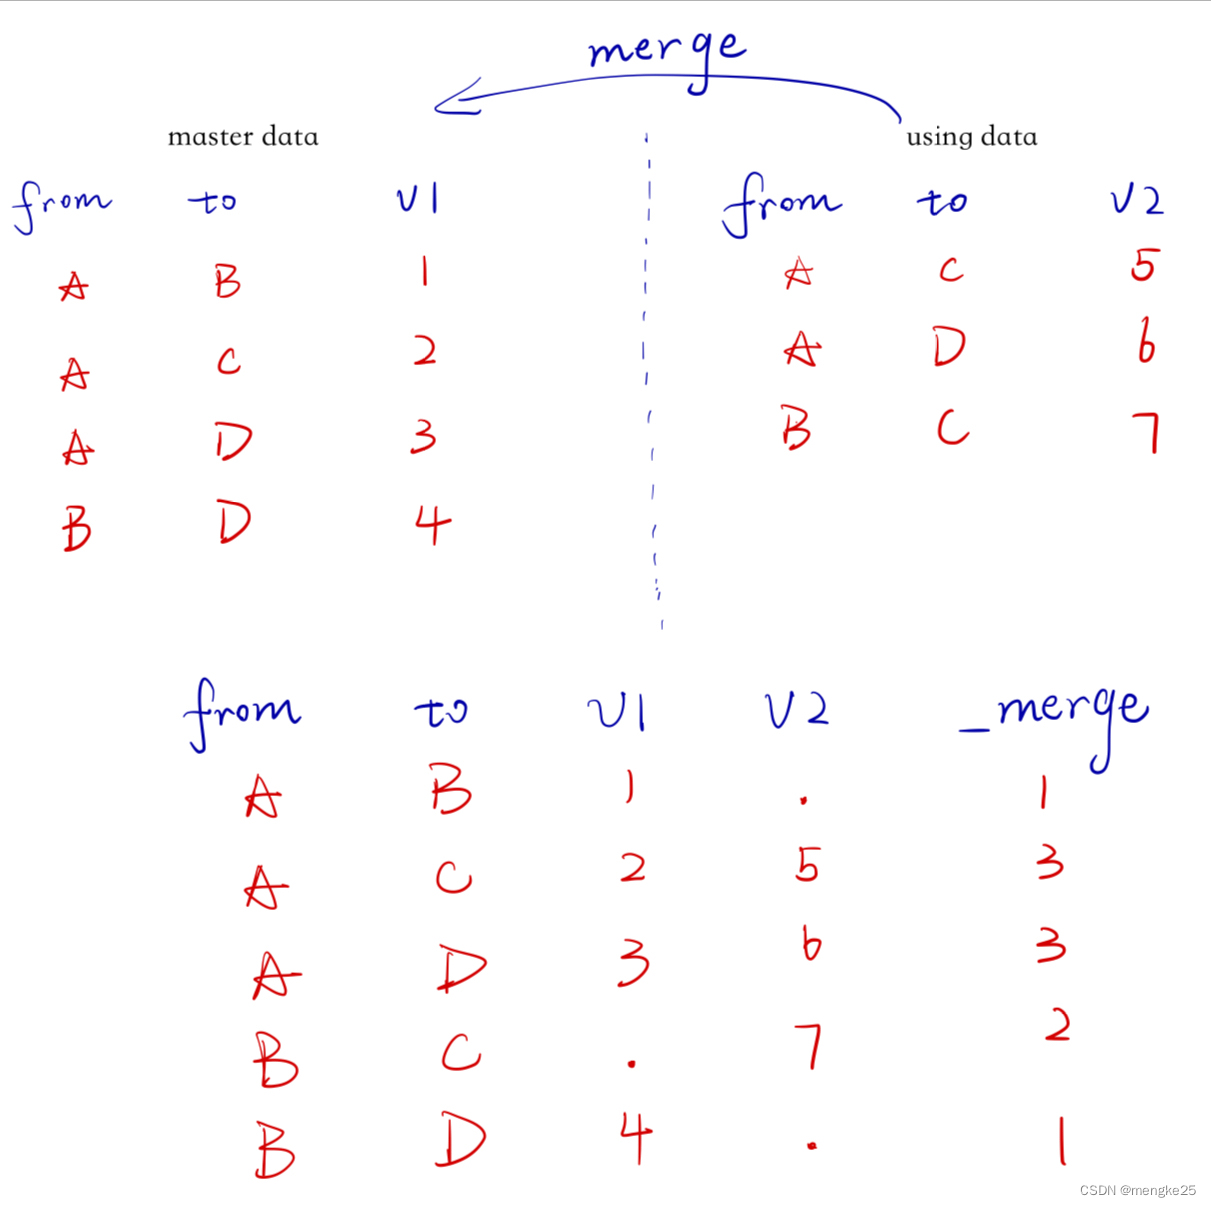 merge
master data
using data
from to v1
A B 1
A C 2
A D 3
B D 4
from to v2
A C 5
A D 6
B C 7
from to v1 v2 _merge
A B 1 . 1
A C 2 5 3
A D 3 6 3
B C . 7 2
B D 4 . 1
CSDN @mengke25